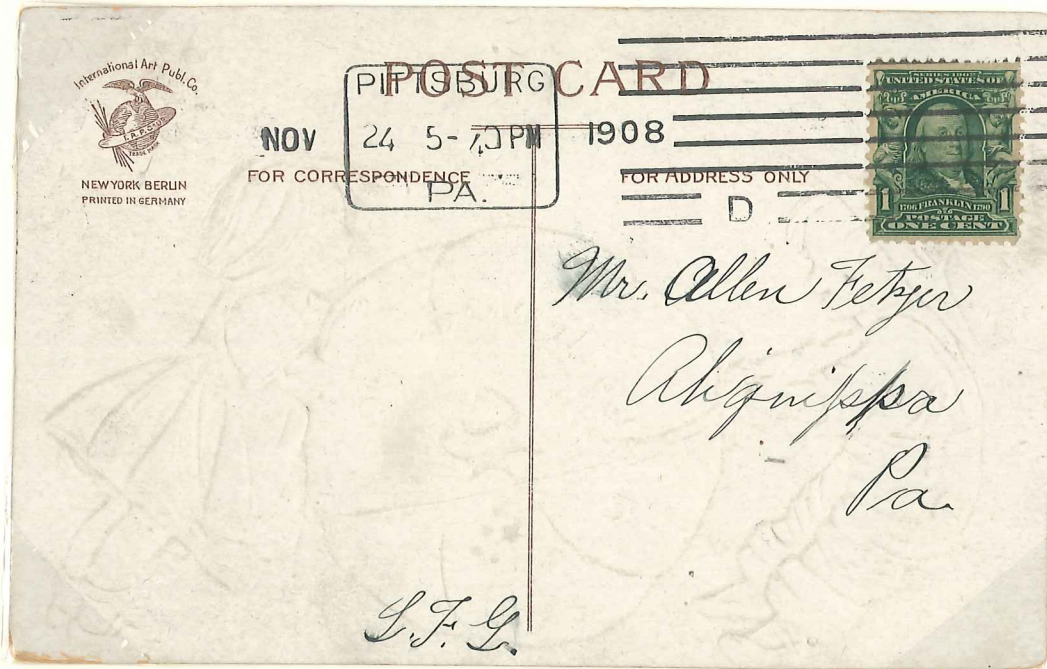 International Art Publ. Co.
I.A.P.CO.
TRADE MARK
NEW YORK BERLIN
PRINTED IN GERMANY
POST CARD
PITTSBURG
NOV 24 5- PM 1908
PA.
D
FOR CORRESPONDENCE
FOR ADDRESS ONLY
SERIES 1902
UNITED STATES OF
AMERICA
1 1
1706 FRANKLIN 1790
POSTAGE
ONE CENT
Mr. Allen Fetzer
Aliquippa
Pa.
L. F. G.